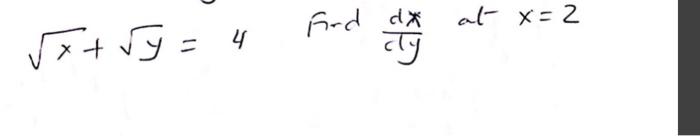 √x + √y = 4 Find dx/dy at x = 2